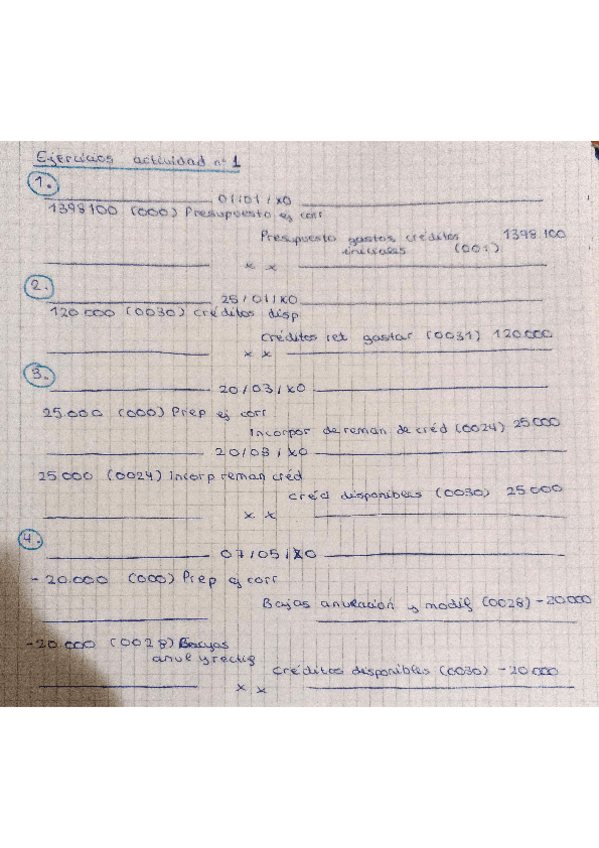 Ejercicios actividad nº 1
1.
01/01/X0
1398100 (000) Presupuesto ej corr
Presupuesto gastos créditos 1398.100
iniciales (001)
x x
2.
25/01/X0
120.000 (0030) Créditos disp
Créditos ret gastar (0031) 120.000
x x
3.
20/03/X0
25.000 (000) Prep ej corr
Incorpor de reman de créd (0024) 25.000
20/03/X0
25.000 (0024) Incorp reman créd
Créd disponibles (0030) 25.000
x x
4.
07/05/X0
-20.000 (000) Prep ej corr
Bajas anulación y modif (0028) -20.000
-20.000 (0028) Bajas
anul y rectif
Créditos disponibles (0030) -20.000
x x